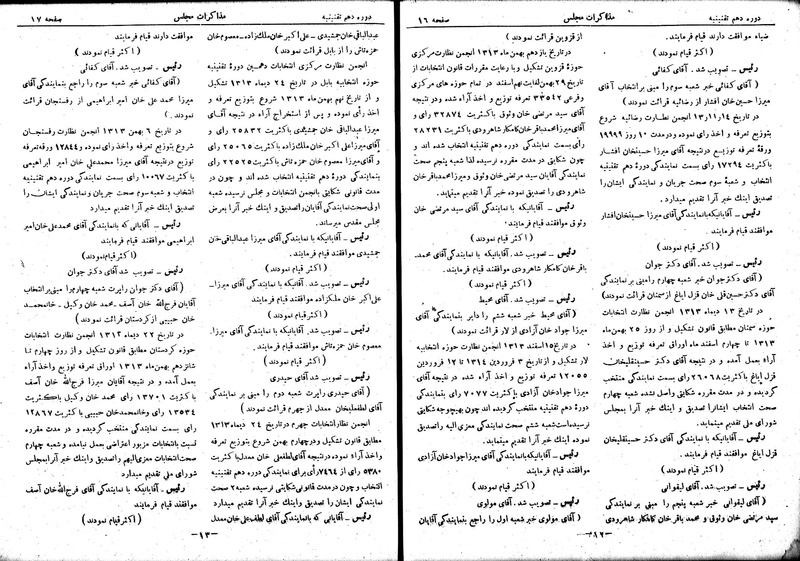 دوره دهم تقنینیه
مذاکرات مجلس
صفحه ۱۶
ضیاء موافقت دارند قیام فرمایند.
(اکثر قیام نمودند)
رئیس ـ تصویب شد. آقای کفائی
(آقای کفائی خبر شعبه سوم را مبنی بر انتخاب آقای
میرزا حسین خان افشار از رضائیه قرائت نمودند)
در تاریخ ۱۳ر۱۱ر۱۴ انجمن نظارت رضائیه شروع
بتوزیع تعرفه و اخذ رای نموده و در مدت ۱۰ روز ۱۹۹۹۶
ورقهٔ تعرفه توزیع در نتیجه آقای میرزا حسینخان افشار
باکثریت ۱۷۲۹۴ رای بسمت نمایندگی دورهٔ دهم تقنینیه
انتخاب و شعبهٔ سوم صحت جریان و نمایندگی ایشان را
تصدیق اینک خبر آنرا تقدیم میدارد.
رئیس ـ آقایانیکه با نمایندگی آقای میرزا حسینخان افشار
موافقند قیام فرمایند.
(اکثر قیام نمودند)
رئیس ـ تصویب شد. آقای دکتر جوان
(آقای دکتر جوان خبر شعبه چهارم را مبنی بر نمایندگی
آقای دکتر حسین قلی خان قزل ایاغ از سمنان قرائت نمودند)
در تاریخ ۱۳ دیماه ۱۳۱۳ انجمن نظارت انتخابات
حوزه سمنان مطابق قانون تشکیل و از روز ۲۵ بهمن ماه
۱۳۱۳ تا چهارم اسفند ماه اوراق تعرفه توزیع و اخذ
آراء بعمل آمده و در نتیجه آقای دکتر حسینقلیخان
قزل ایاغ باکثریت ۲۶۰۶۸ رای بسمت نمایندگی منتخب
گردیده و در مدت مقرره شکایتی واصل نشده شعبه چهارم
صحت انتخاب ایشانرا تصدیق و اینک خبر آنرا بمجلس
شورای ملی تقدیم مینماید.
رئیس ـ آقایانیکه با نمایندگی آقای دکتر حسینقلیخان
قزل ایاغ موافقند قیام فرمایند.
(اکثر قیام نمودند)
رئیس ـ تصویب شد. آقای لیقوانی
(آقای لیقوانی خبر شعبه پنجم را مبنی بر نمایندگی
سید مرتضی خان وثوقی و محمد باقر خان کامکار شاهرودی
از قزوین قرائت نمودند.)
در تاریخ یازدهم بهمن ماه ۱۳۱۳ انجمن نظارت مرکزی
حوزه قزوین تشکیل و با رعایت مقررات قانون انتخابات از
تاریخ ۲۹ بهمن لغایت نهم اسفند در تمام حوزه های مرکزی
و فرعی ۳۳۵۴۲ تعرفه توزیع و اخذ آراء شده و در نتیجه
آقای سید مرتضی خان وثوق باکثریت ۳۲۸۷۴ رای و
آقای میرزا محمد باقر خان کامکار شاهرودی باکثریت ۲۸۲۳۱
رای بسمت نمایندگی دوره دهم تقنینیه انتخاب شده اند و
چون شکایتی در مدت مقرره نرسیده لذا شعبه پنجم صحت
نمایندگی آقایان سید مرتضی خان وثوقی و میرزا محمد باقر خان
شاهرودی را تصدیق نموده خبر آنرا تقدیم مینماید.
رئیس ـ آقایانیکه با نمایندگی آقای سید مرتضی خان
وثوق موافقند قیام فرمایند:
(اکثر قیام نمودند)
رئیس ـ تصویب شد. آقایانیکه با نمایندگی آقای محمد.
باقر خان کامکار شاهرودی موافقند قیام فرمایند.
(اکثر قیام نمودند)
رئیس ـ تصویب شد. آقای محیط
(آقای محیط خبر شعبه ششم را دایر بنمایندگی آقای
میرزا جواد خان آزادی از لار قرائت نمودند)
در تاریخ ۱۵ اسفند ۱۳۱۳ انجمن نظارت حوزه انتخابیه
لار تشکیل از تاریخ ۳ فروردین ۱۳۱۴ تا ۱۲ فروردین
۱۲۰۵۵ تعرفه توزیع و اخذ آراء شده در نتیجه آقای
میرزا جواد خان آزادی باکثریت ۷۰۷۷ رای بنمایندگی
دورهٔ دهم تقنینیه منتخب گردیده اند چون بهیچوجه شکایتی
نرسیده است شعبه ششم صحت نمایندگی معزی الیه را تصدیق
نموده اینک خبر آنرا تقدیم مینماید.
رئیس ـ آقایانیکه با نمایندگی آقای میرزا جواد خان آزادی
موافقند قیام فرمایند
(اکثر قیام نمودند)
رئیس ـ تصویب شد. آقای مؤلوی
(آقای مؤلوی خبر شعبه اول را راجع بنمایندگی آقایان
ـ۱۲ـ
دوره دهم تقنینیه
مذاکرات مجلس
صفحه ۱۷
عبدالباقی خان جمشیدی ـ علی اکبر خان ملک زاده ـ معصوم خان
حمزه تاش را از بابل قرائت نمودند)
انجمن نظارت مرکزی انتخابات دهمین دورهٔ تقنینیه
حوزه انتخابیه بابل در تاریخ ۲۴ دیماه ۱۳۱۳ تشکیل
و از تاریخ نهم بهمن ماه ۱۳۱۳ شروع بتوزیع تعرفه و
اخذ رأی نموده و پس از استخراج آراء در نتیجه آقای
میرزا عبدالباقی خان جمشیدی باکثریت ۲۵۸۳۲ رای و
آقای میرزا علی اکبر خان ملکزاده باکثریت ۲۵۰۶۵ رای
و آقای میرزا معصوم خان حمزه تاش باکثریت ۲۲۵۲۵ رای
بنمایندگی دوره دهم تقنینیه انتخاب شده اند و چون در
مدت قانونی شکایتی بانجمن انتخابات و مجلس نرسیده شعبه
اولی صحت نمایندگی آقایان را تصدیق و اینک خبر آنرا بعرض
مجلس مقدس میرساند.
رئیس ـ آقایانیکه با نمایندگی آقای میرزا عبدالباقی خان
جمشیدی موافقند قیام فرمایند.
(اکثر قیام نمودند)
رئیس ـ تصویب شد. آقایانیکه با نمایندگی آقای میرزا ـ
علی اکبر خان ملکزاده موافقند قیام فرمایند
(اکثر قیام نمودند)
رئیس ـ تصویب شد. آقایانیکه با نمایندگی آقای میرزا.
معصوم خان حمزه تاش موافقند قیام فرمایند.
(اکثر قیام نمودند)
رئیس ـ تصویب شد. آقای حیدری
(آقای حیدری راپرت شعبه دوم را مبنی بر نمایندگی
آقای لطفعلیخان معدل از جهرم قرائت نمودند)
انجمن نظار انتخابات جهرم در تاریخ ۲۴ دیماه ۱۳۱۳
مطابق قانون تشکیل و در چهارم بهمن شروع بتوزیع تعرفه
و اخذ آراء نموده در نتیجه آقای لطفعلی خان معدل باکثریت
۵۳۸۰ رأی از ۷۴۶۴ رأی برای نمایندگی دوره دهم تقنینیه
انتخاب و چون در مدت قانونی شکایتی نرسیده شعبه ۲ صحت
نمایندگی ایشان را تصدیق و اینک خبر آنرا تقدیم میدارد
رئیس ـ آقایانی که با نمایندگی آقای لطف علی خان معدل
موافقت دارند قیام فرمایند
(اکثر قیام نمودند)
رئیس ـ تصویب شد. آقای کفائی
(آقای کفائی خبر شعبه سوم را راجع بنمایندگی آقای
میرزا محمد علی خان امیر ابراهیمی از رفسنجان قرائت
نمودند.)
در تاریخ ۶ بهمن ۱۳۱۳ انجمن نظارت رفسنجان
شروع بتوزیع تعرفه و اخذ رای نموده و ۱۲۸۴۴ ورقه تعرفه
توزیع در نتیجه آقای میرزا محمد علی خان امیر ابراهیمی
باکثریت ۱۰۰۶۷ رای بسمت نمایندگی دوره دهم تقنینیه
انتخاب و شعبه سوم صحت جریان و نمایندگی ایشان را
تصدیق اینک خبر آنرا تقدیم میدارد
رئیس ـ آقایانی که با نمایندگی آقای محمد علی خان امیر
ابراهیمی موافقند قیام فرمایند
(اکثر قیام نمودند)
رئیس ـ تصویب شد آقای دکتر جوان
(آقای دکتر جوان راپرت شعبه چهارم را مبنی بر انتخاب
آقایان فرج الله خان آصف ـ محمد خان وکیل ـ خانمحمد
خان حبیبی از کردستان قرائت نمودند)
در تاریخ ۲۲ دیماه ۱۳۱۲ انجمن نظارت انتخابات
حوزه کردستان مطابق قانون تشکیل و از روز چهارم تا
شانزدهم بهمن ماه ۱۳۱۳ اوراق تعرفه توزیع و اخذ آراء
بعمل آمده و در نتیجه آقایان میرزا فرج الله خان آصف
باکثریت ۱۳۷۰۱ رای و محمد خان وکیل باکثریت
۱۳۵۳۴ رای و خانمحمد خان حبیبی با کثریت ۱۲۸۶۷
رای بسمت نمایندگی منتخب گردیده و در مدت مقرره
نسبت بانتخابات مزبور اعتراضی بعمل نیامده و شعبه چهارم
صحت انتخابات معزی الیهم را تصدیق و اینک خبر آنرا بمجلس
شورای ملی تقدیم میدارد
رئیس ـ آقایانیکه با نمایندگی آقای فرج الله خان آصف
موافقند قیام فرمایند
(اکثر قیام نمودند)
ـ۱۳ـ